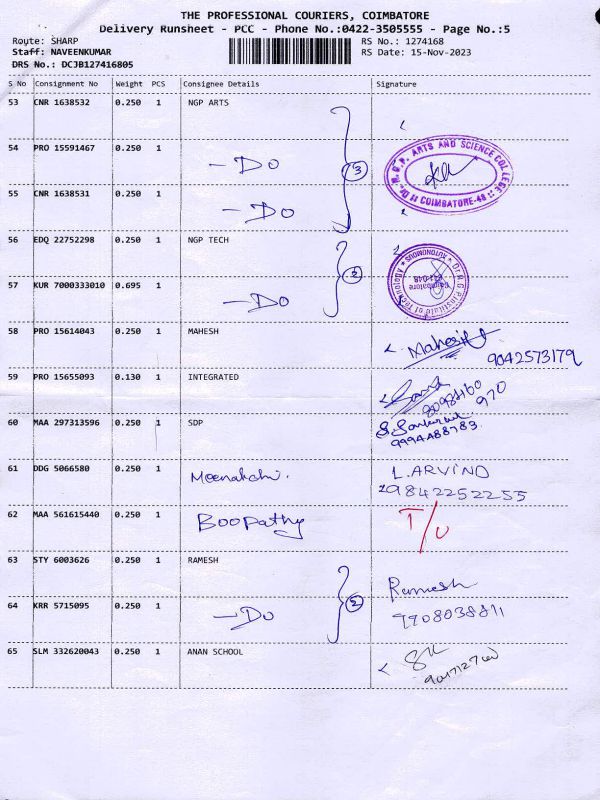 THE PROFESSIONAL COURIERS, COIMBATORE
Delivery Runsheet - PCC - Phone No.:0422-3505555 - Page No.:5
Route: SHARP RS No.: 1274168
Staff: NAVEENKUMAR RS Date: 15-Nov-2023
DRS No.: DCJB127416805
S No Consignment No Weight PCS Consignee Details Signature
53 CNR 1638532 0.250 1 NGP ARTS
54 PRO 15591467 0.250 1
- DO
3
Dr. N.G.P. ARTS AND SCIENCE COLLEGE
COIMBATORE-48
55 CNR 1638531 0.250 1
- DO
56 EDQ 22752298 0.250 1 NGP TECH
2
Dr.N.G.P.Institute of Technology
AUTONOMOUS
Coimbatore
641 048
57 KUR 7000333010 0.695 1
- DO
58 PRO 15614043 0.250 1 MAHESH
9042573179
59 PRO 15655093 0.130 1 INTEGRATED
970
60 MAA 297313596 0.250 1 SDP
61 DDG 5066580 0.250 1 Meenakchi. L.ARVIND
9842252255
62 MAA 561615440 0.250 1 BooPathy T/U
63 STY 6003626 0.250 1 RAMESH
Ramesh
2
64 KRR 5715095 0.250 1
- Do
9908038811
65 SLM 332620043 0.250 1 ANAN SCHOOL